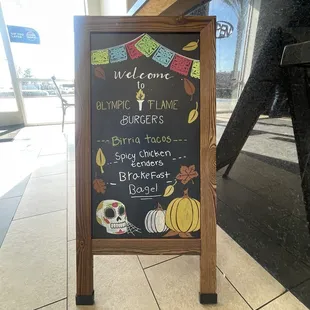 Welcome
to
OLYMPIC FLAME
BURGERS
Birria tacos
Spicy Chicken
tenders
BrakeFast
Bagel
OPEN